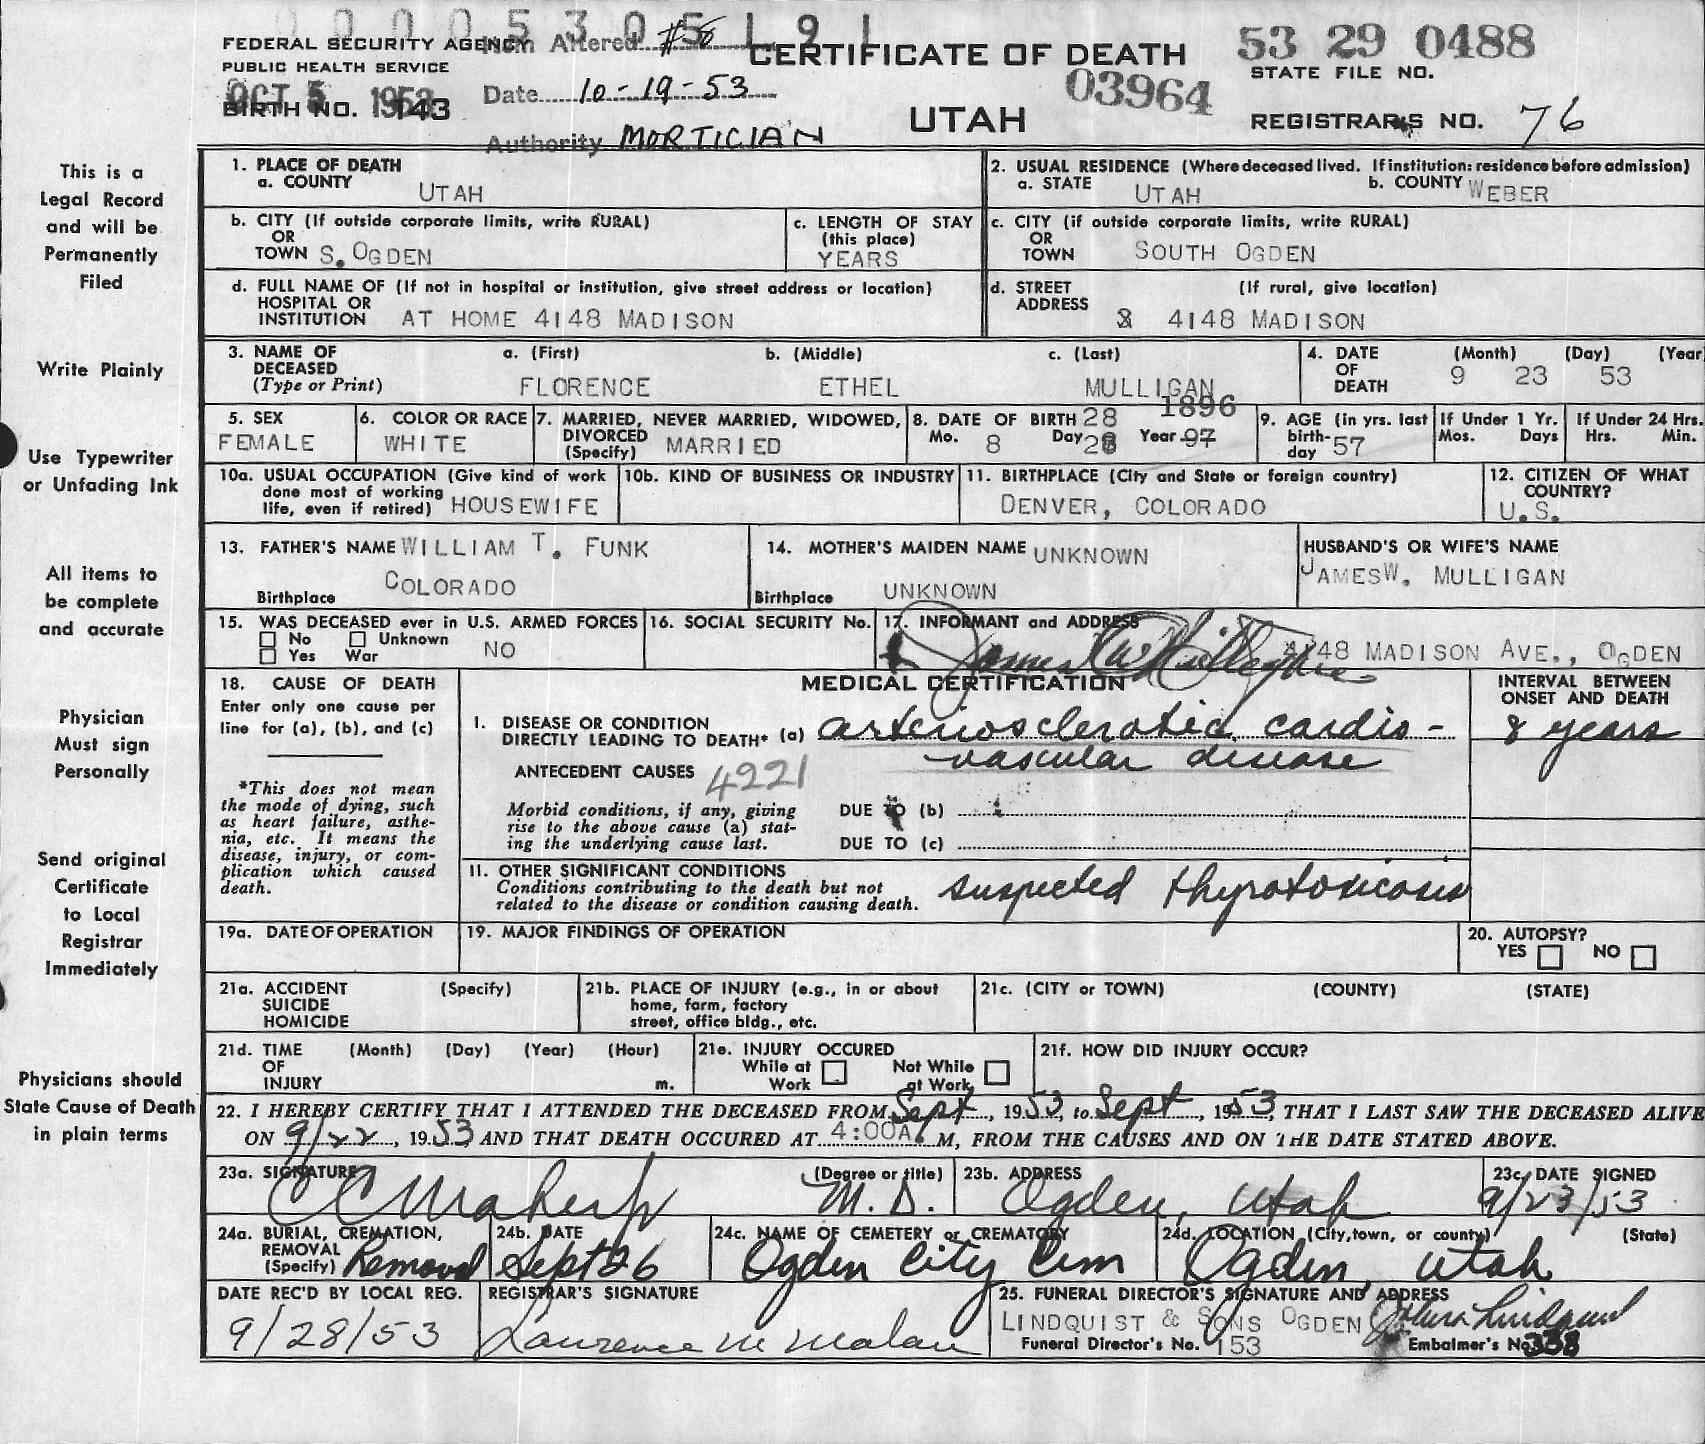 0 0 0 0 5 3 0 5 1 9 1
FEDERAL SECURITY AGENCY
PUBLIC HEALTH SERVICE
OCT 5 1953
BIRTH NO. 143
Item Altered #8
Date 10-19-53
Authority MORTICIAN
CERTIFICATE OF DEATH
03964
UTAH
53 29 0488
STATE FILE NO.
REGISTRAR'S NO. 76
This is a
Legal Record
and will be
Permanently
Filed
Write Plainly
Use Typewriter
or Unfading Ink
All items to
be complete
and accurate
Physician
Must sign
Personally
Send original
Certificate
to Local
Registrar
Immediately
Physicians should
State Cause of Death
in plain terms
1. PLACE OF DEATH
a. COUNTY UTAH
2. USUAL RESIDENCE (Where deceased lived. If institution: residence before admission)
a. STATE UTAH b. COUNTY WEBER
b. CITY (If outside corporate limits, write RURAL)
OR
TOWN S. OGDEN
c. LENGTH OF STAY
(this place)
YEARS
c. CITY (if outside corporate limits, write RURAL)
OR
TOWN SOUTH OGDEN
d. FULL NAME OF (If not in hospital or institution, give street address or location)
HOSPITAL OR
INSTITUTION AT HOME 4148 MADISON
d. STREET (If rural, give location)
ADDRESS 4148 MADISON
3. NAME OF DECEASED (Type or Print)
a. (First) b. (Middle) c. (Last)
FLORENCE ETHEL MULLIGAN
4. DATE OF DEATH (Month) (Day) (Year
9 23 53
5. SEX
FEMALE
6. COLOR OR RACE
WHITE
7. MARRIED, NEVER MARRIED, WIDOWED,
DIVORCED
(Specify) MARRIED
8. DATE OF BIRTH 28 1896
Mo. 8 Day 28 Year 97
9. AGE (in yrs. last
birth-
day 57
If Under 1 Yr.
Mos. Days
If Under 24 Hrs.
Hrs. Min.
10a. USUAL OCCUPATION (Give kind of work
done most of working
life, even if retired) HOUSEWIFE
10b. KIND OF BUSINESS OR INDUSTRY
11. BIRTHPLACE (City and State or foreign country)
DENVER, COLORADO
12. CITIZEN OF WHAT
COUNTRY?
U.S.
13. FATHER'S NAME WILLIAM T. FUNK
Birthplace COLORADO
14. MOTHER'S MAIDEN NAME UNKNOWN
Birthplace UNKNOWN
HUSBAND'S OR WIFE'S NAME
JAMESW. MULLIGAN
15. WAS DECEASED ever in U.S. ARMED FORCES
No Unknown
Yes War NO
16. SOCIAL SECURITY No.
17. INFORMANT and ADDRESS
James W Mulligan 4148 MADISON AVE., OGDEN
18. CAUSE OF DEATH
Enter only one cause per
line for (a), (b), and (c)
*This does not mean
the mode of dying, such
as heart failure, asthe-
nia, etc. It means the
disease, injury, or com-
plication which caused
death.
MEDICAL CERTIFICATION
INTERVAL BETWEEN
ONSET AND DEATH
I. DISEASE OR CONDITION
DIRECTLY LEADING TO DEATH* (a) arteriosclerotic cardio-
vascular disease
8 years
ANTECEDENT CAUSES 4221
Morbid conditions, if any, giving
rise to the above cause (a) stat-
ing the underlying cause last.
DUE TO (b)
DUE TO (c)
II. OTHER SIGNIFICANT CONDITIONS
Conditions contributing to the death but not
related to the disease or condition causing death.
suspected thyrotoxicosis
19a. DATE OF OPERATION
19. MAJOR FINDINGS OF OPERATION
20. AUTOPSY?
YES NO
21a. ACCIDENT (Specify)
SUICIDE
HOMICIDE
21b. PLACE OF INJURY (e.g., in or about
home, farm, factory
street, office bldg., etc.
21c. (CITY or TOWN) (COUNTY) (STATE)
21d. TIME (Month) (Day) (Year) (Hour)
OF
INJURY m.
21e. INJURY OCCURED
While at Work Not While at Work
21f. HOW DID INJURY OCCUR?
22. I HEREBY CERTIFY THAT I ATTENDED THE DECEASED FROM Sept, 1953, to Sept, 1953, THAT I LAST SAW THE DECEASED ALIVE
ON 9/22, 1953 AND THAT DEATH OCCURED AT 4:00A M, FROM THE CAUSES AND ON THE DATE STATED ABOVE.
23a. SIGNATURE (Degree or title)
M.D.
23b. ADDRESS
Ogden, Utah
23c. DATE SIGNED
9/23/53
24a. BURIAL, CREMATION,
REMOVAL
(Specify) Removal
24b. DATE
Sept 26
24c. NAME OF CEMETERY or CREMATORY
Ogden City Cem
24d. LOCATION (City, town, or county) (State)
Ogden, Utah
DATE REC'D BY LOCAL REG.
9/28/53
REGISTRAR'S SIGNATURE
Laurence M Malan
25. FUNERAL DIRECTOR'S SIGNATURE AND ADDRESS
LINDQUIST & SONS OGDEN
Funeral Director's No. 153
Embalmer's No. 338